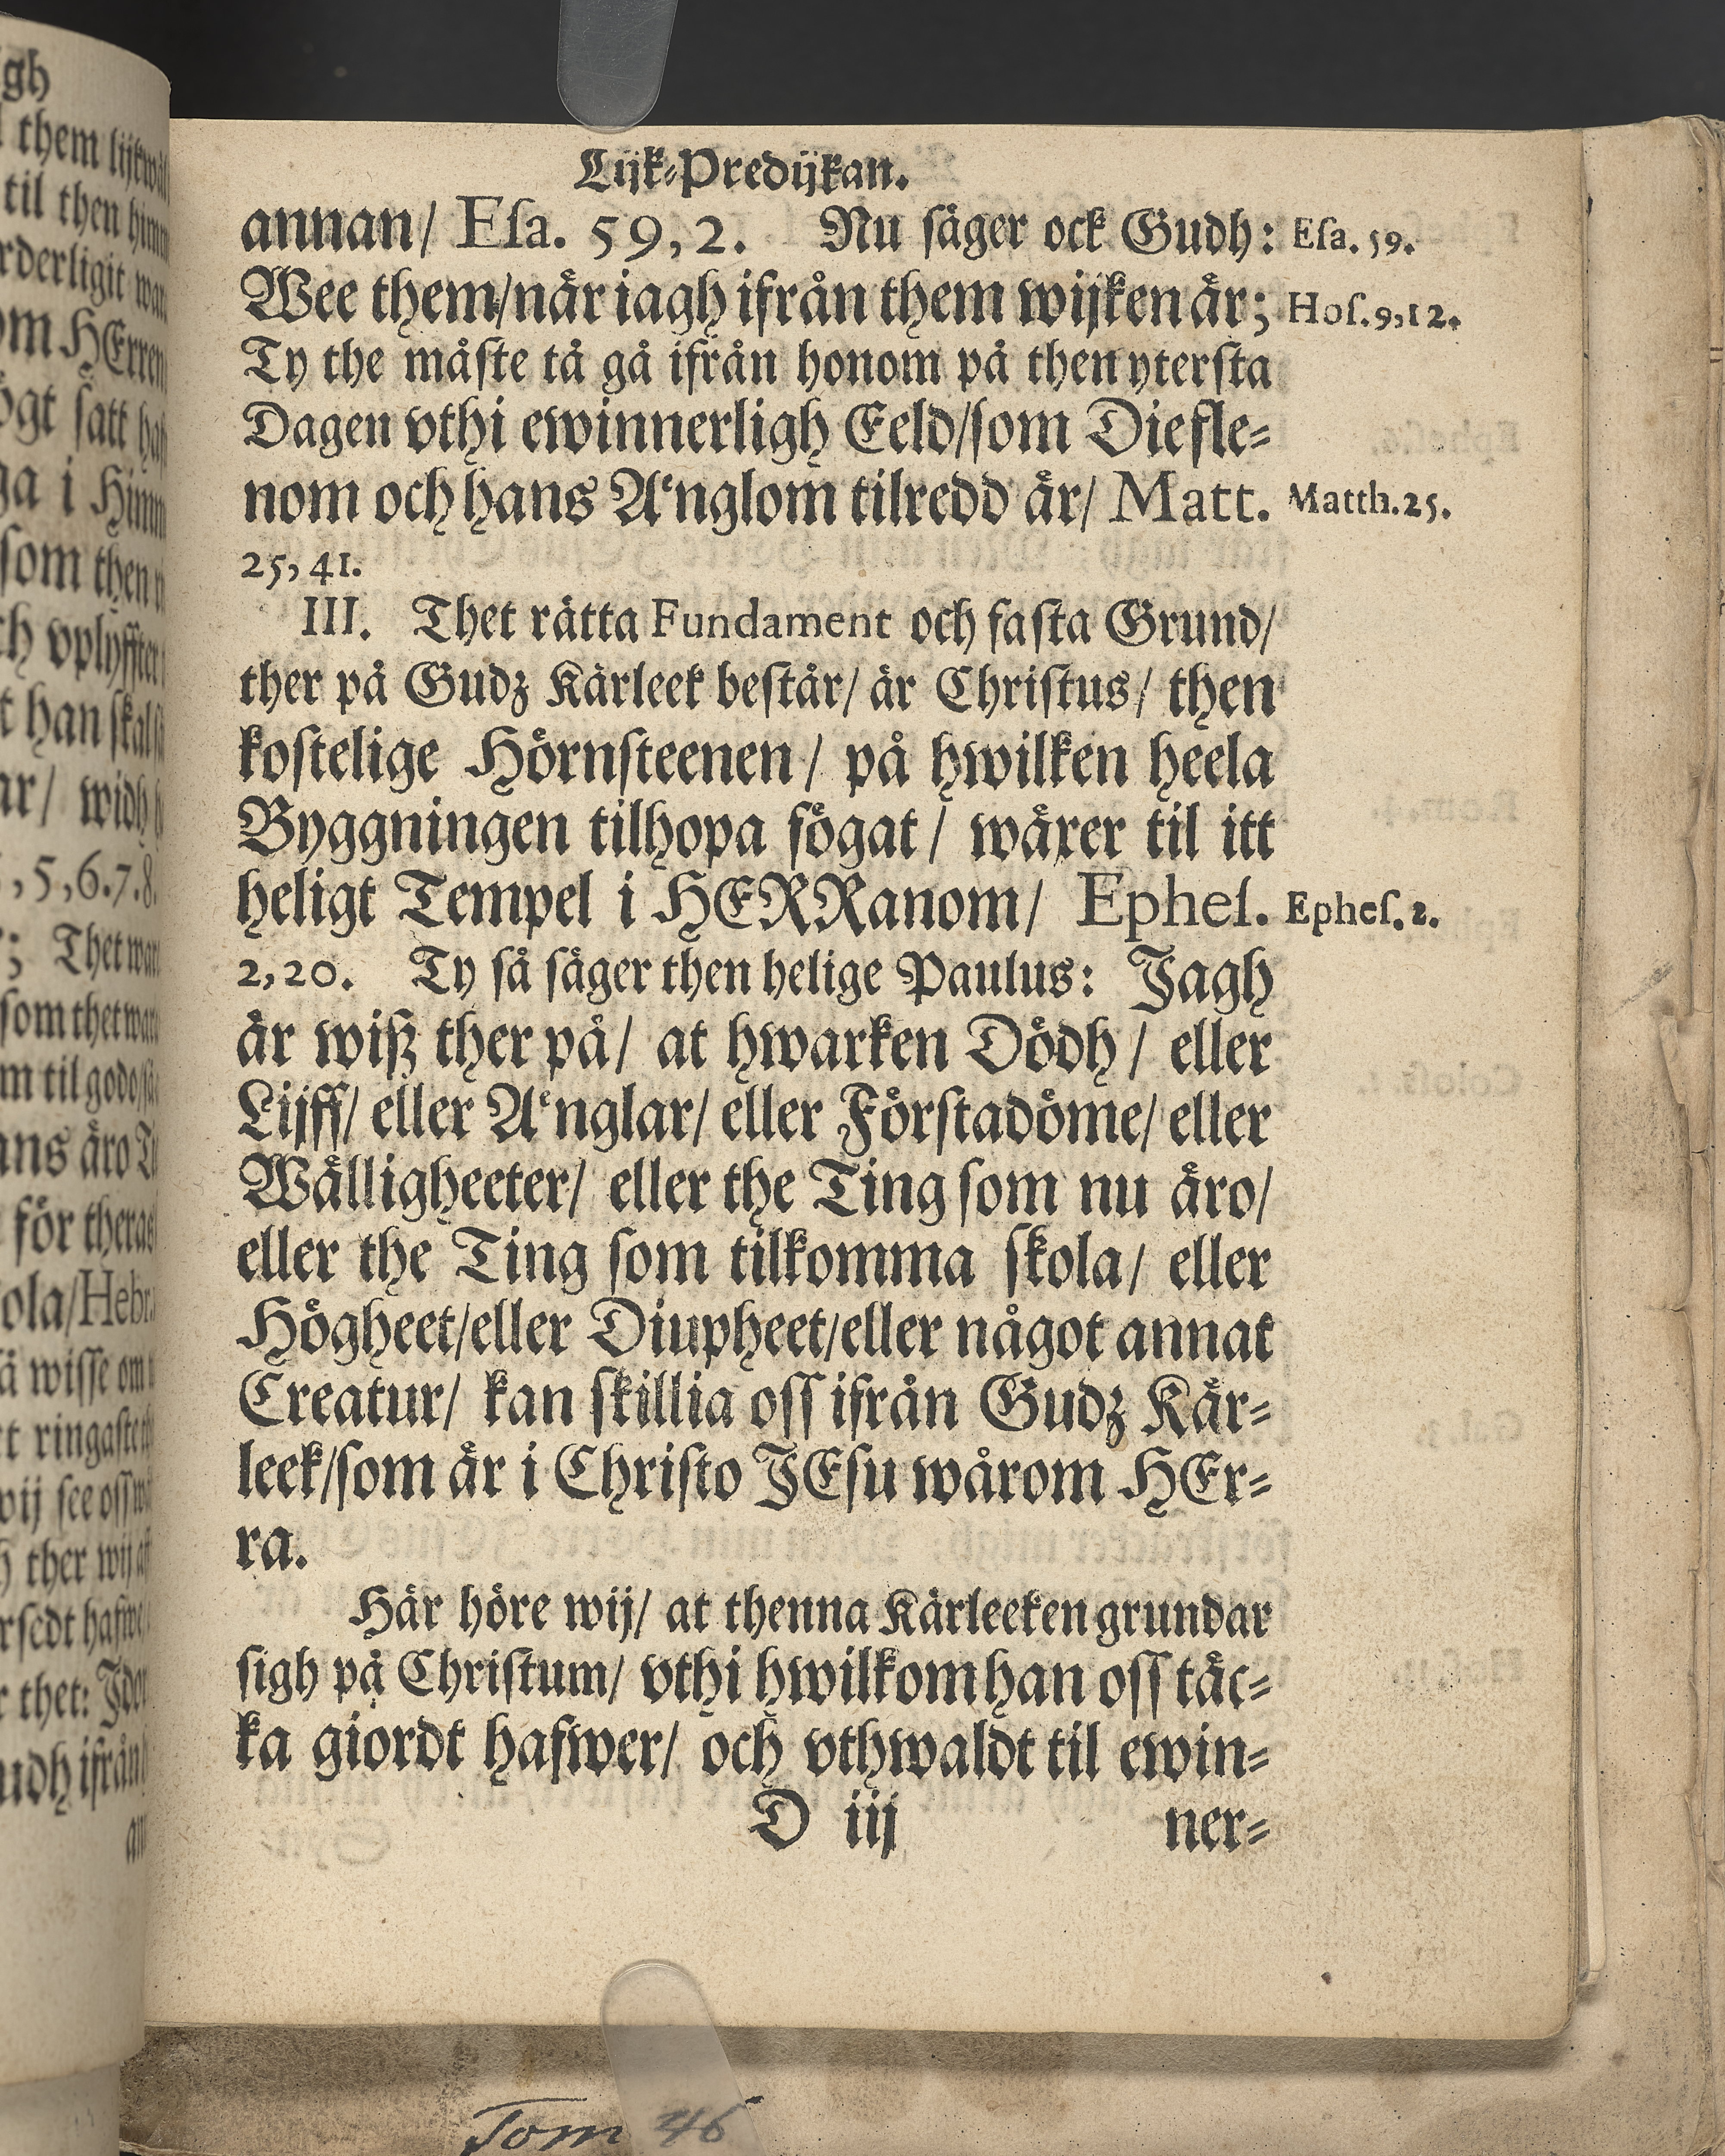 Lijk-Predijkan.
annan/ Eſa. 59, 2. Nu ſäger ock Gudh: Eſa. 59.
Wee them/när iagh ifrån them wijken är; Hoſ. 9, 12.
Ty the måſte tå gå ifrån honom på then yterſta
Dagen vthi ewinnerligh Eeld/ſom Diefle-
nom och hans Änglom tilredd är/ Matt. Matth. 25.
25, 41.
III. Thet rätta Fundament och faſta Grund/
ther på Gudz Kärleek beſtår/ är Chriſtus/ then
koſtelige Hörnſteenen/ på hwilken heela
Byggningen tilhopa fögat/ wäxer til itt
heligt Tempel i HERRanom/ Epheſ. Epheſ. 2.
2, 20. Ty ſå ſäger then helige Paulus: Jagh
är wiß ther på/ at hwarken Dödh/ eller
Lijff/ eller Änglar/ eller Förſtadöme/ eller
Wälligheeter/ eller the Ting ſom nu äro/
eller the Ting ſom tilkomma ſkola/ eller
Högheet/eller Diupheet/eller något annat
Creatur/ kan ſkillia oſſ ifrån Gudz Kär-
leek/ſom är i Chriſto JEſu wårom HEr-
ra.
Här höre wij/ at thenna Kärleeken grundar
ſigh på Chriſtum/ vthi hwilkom han oſſ täc-
ka giordt hafwer/ och vthwaldt til ewin-
D iij ner-
Tom 46